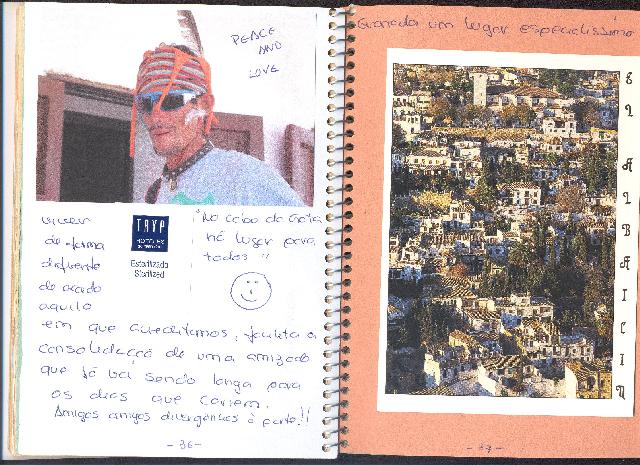 PEACE
AND
LOVE
viver
de forma
diferente
de acordo
aquilo
TRYP
HOTELES
Esterilizado
Sterilized
"No Cabo da Gata
há lugar para
todos"
em que acreditamos, facilita a
consolidação de uma amizade
que já vai sendo longa para
os dias que correm.
Amigos amigos divergências à parte!!
-36-
Granada um lugar especialíssimo
EL ALBAICIN
-37-